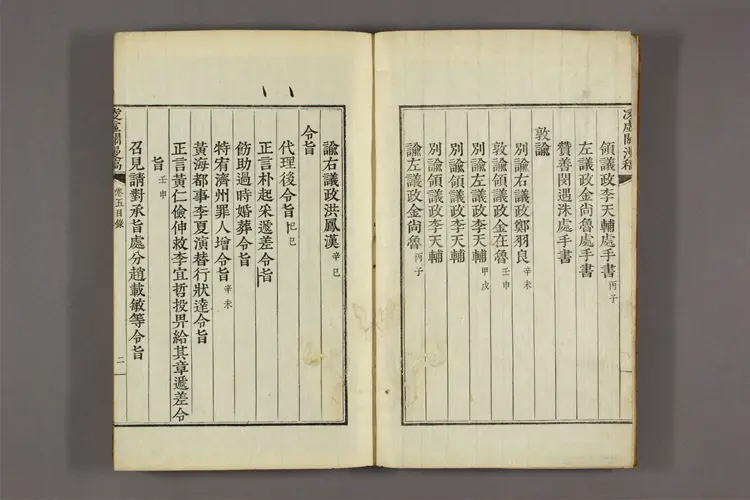 凌虛關漫稿
領議政李天輔處手書丙子
左議政金尚魯處手書
贊善閔遇洙處手書
敦諭
別諭右議政鄭羽良辛未
敦諭領議政金在魯壬申
別諭左議政李天輔甲戌
別諭領議政李天輔
別諭領議政李天輔
諭左議政金尚魯丙子
諭右議政洪鳳漢辛巳
令旨
代理後令旨己巳
正言朴起采遞差令旨
飭助過時婚葬令旨
特宥濟州罪人增令旨辛未
黃海都事李夏演替行狀達令旨
正言黃仁儉伸救李宜哲投畀給其章遞差令
旨壬申
召見請對承旨處分趙載敏等令旨
凌虛關漫稿 卷五目錄 二